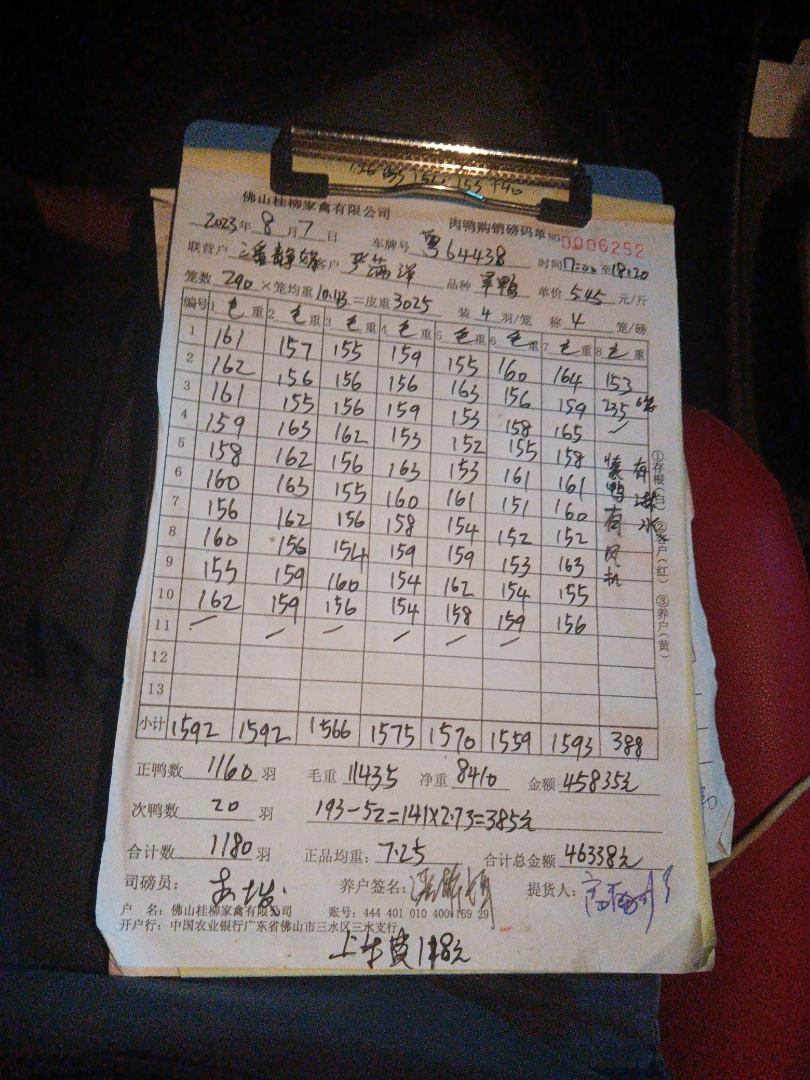 156 153 156 153 140
佛山桂柳家禽有限公司 肉鸭购销磅码单 NO 0006252
2023年 8月 7日 车牌号 粤64438 时间17:00至18:20
联营户 客户 品种 单价 5.45 元/斤
笼数 290 ×笼均重10.43=皮重3025 装 4 羽/笼 称 4 笼/磅
编号 1 毛重 2 毛重 3 毛重 4 毛重 5 毛重 6 毛重 7 毛重 8 毛重
1 161 157 155 159 155 160 164 153
2 162 156 156 156 163 156 159 235
3 161 155 156 159 153 158 165 /
4 159 163 162 153 152 155 158
5 158 162 156 163 153 161 161
6 160 163 155 160 161 151 160
7 156 162 156 158 154 152 152
8 160 156 154 159 159 153 163
9 155 159 160 154 162 154 155
10 162 159 156 154 158 159 156
11
12
13
装鸭有风机
有淋水
小计 1592 1592 1566 1575 1570 1559 1593 388
①存根(白) ②客户(红) ③养户(黄)
正鸭数 1160 羽 毛重 11435 净重 8410 金额 45835元
次鸭数 20 羽 193-52=141×2.73=385元
合计数 1180 羽 正品均重: 7.25 合计总金额 46338元
司磅员: 养户签名: 提货人:
户 名: 佛山桂柳家禽有限公司 账号: 444 401 010 400 169 29
开户行: 中国农业银行广东省佛山市三水区三水支行
上车费118元